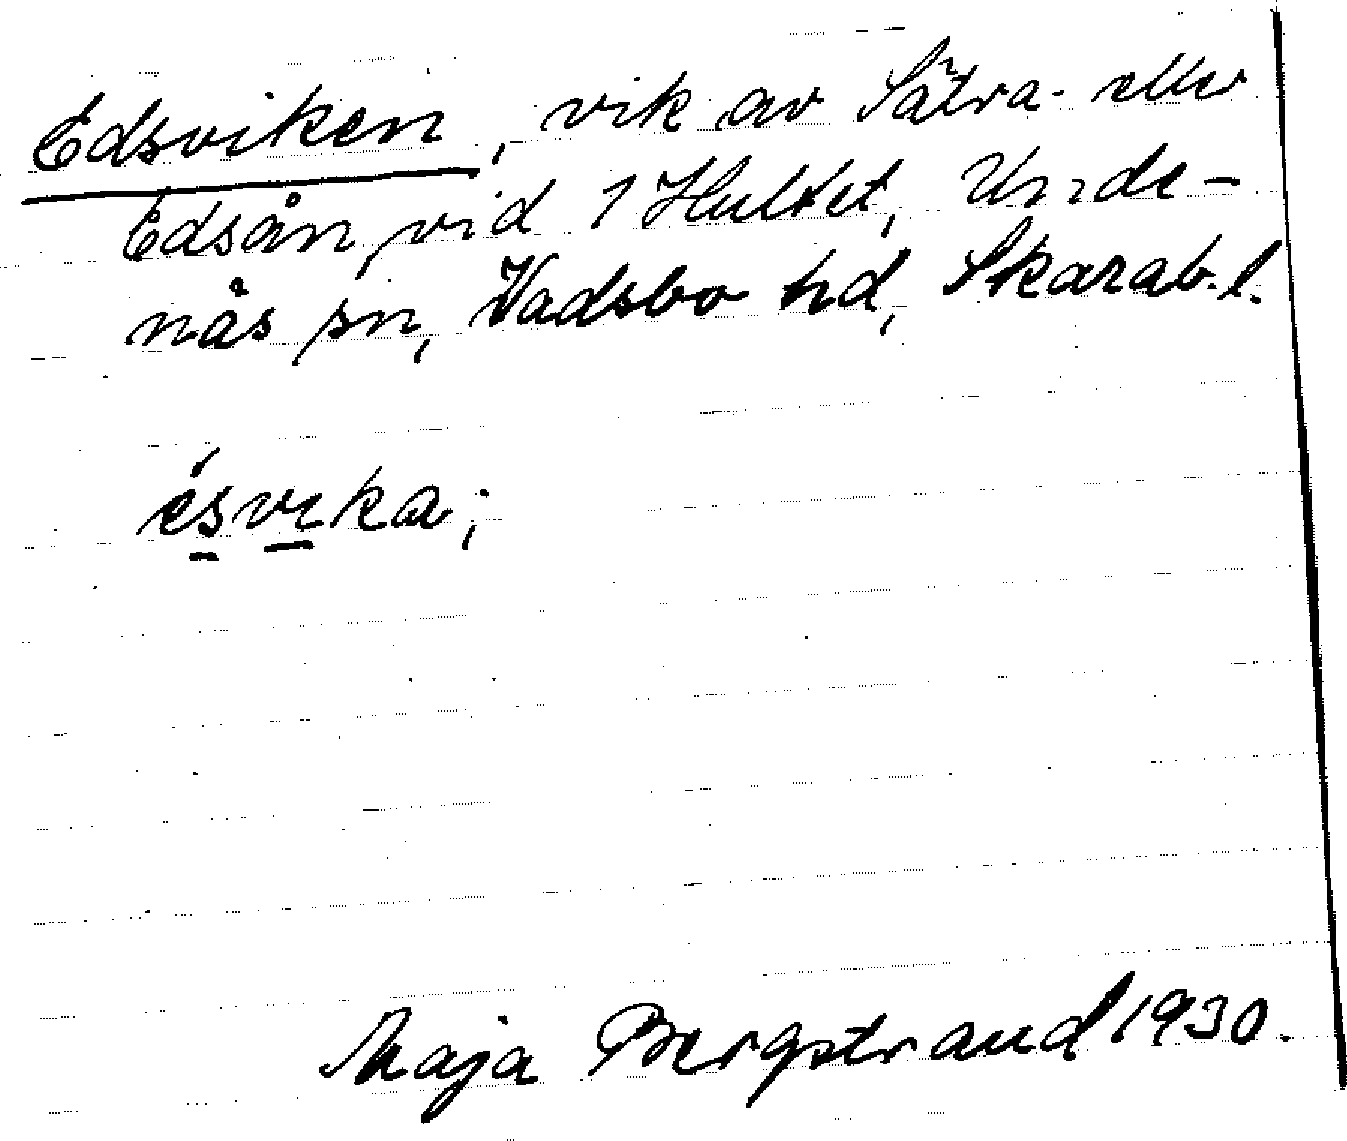 Edsviken, vik av Sätra- eller
Edsån, vid 1 Hultet, Unde-
näs sn, Vadsbo hd, Skarab. l.
ésvika;
Maja Bergstrand 1930.